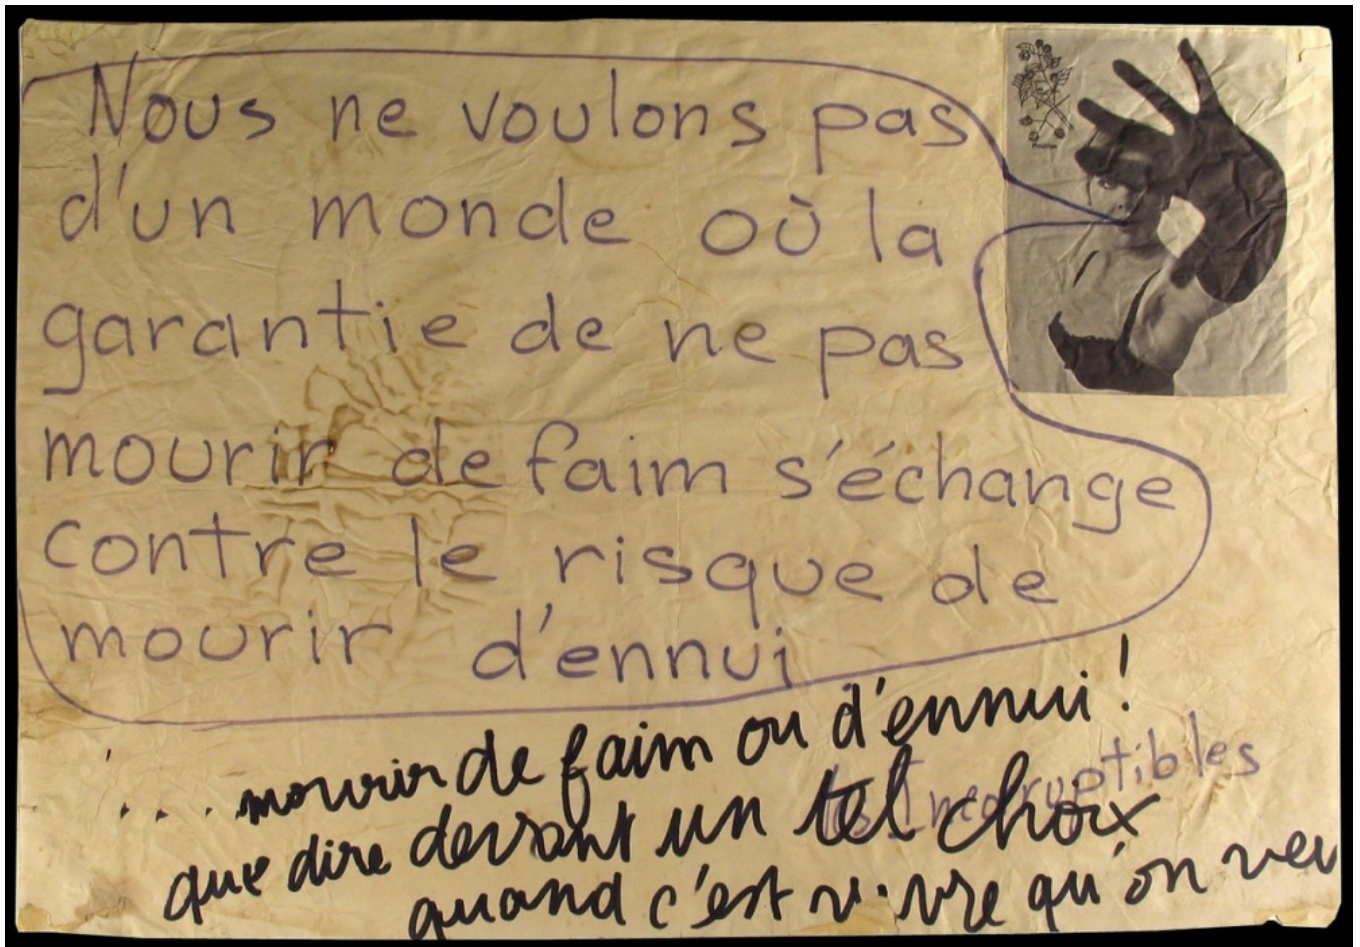 Nous ne voulons pas
d'un monde où la
garantie de ne pas
mourir de faim s'échange
contre le risque de
mourir d'ennui
.... mourir de faim ou d'ennui !
que dire devant un tel choix
quand c'est vivre qu'on veu
les Incorruptibles